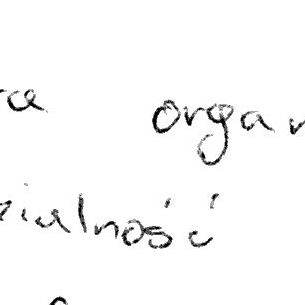 ra organ
zialność